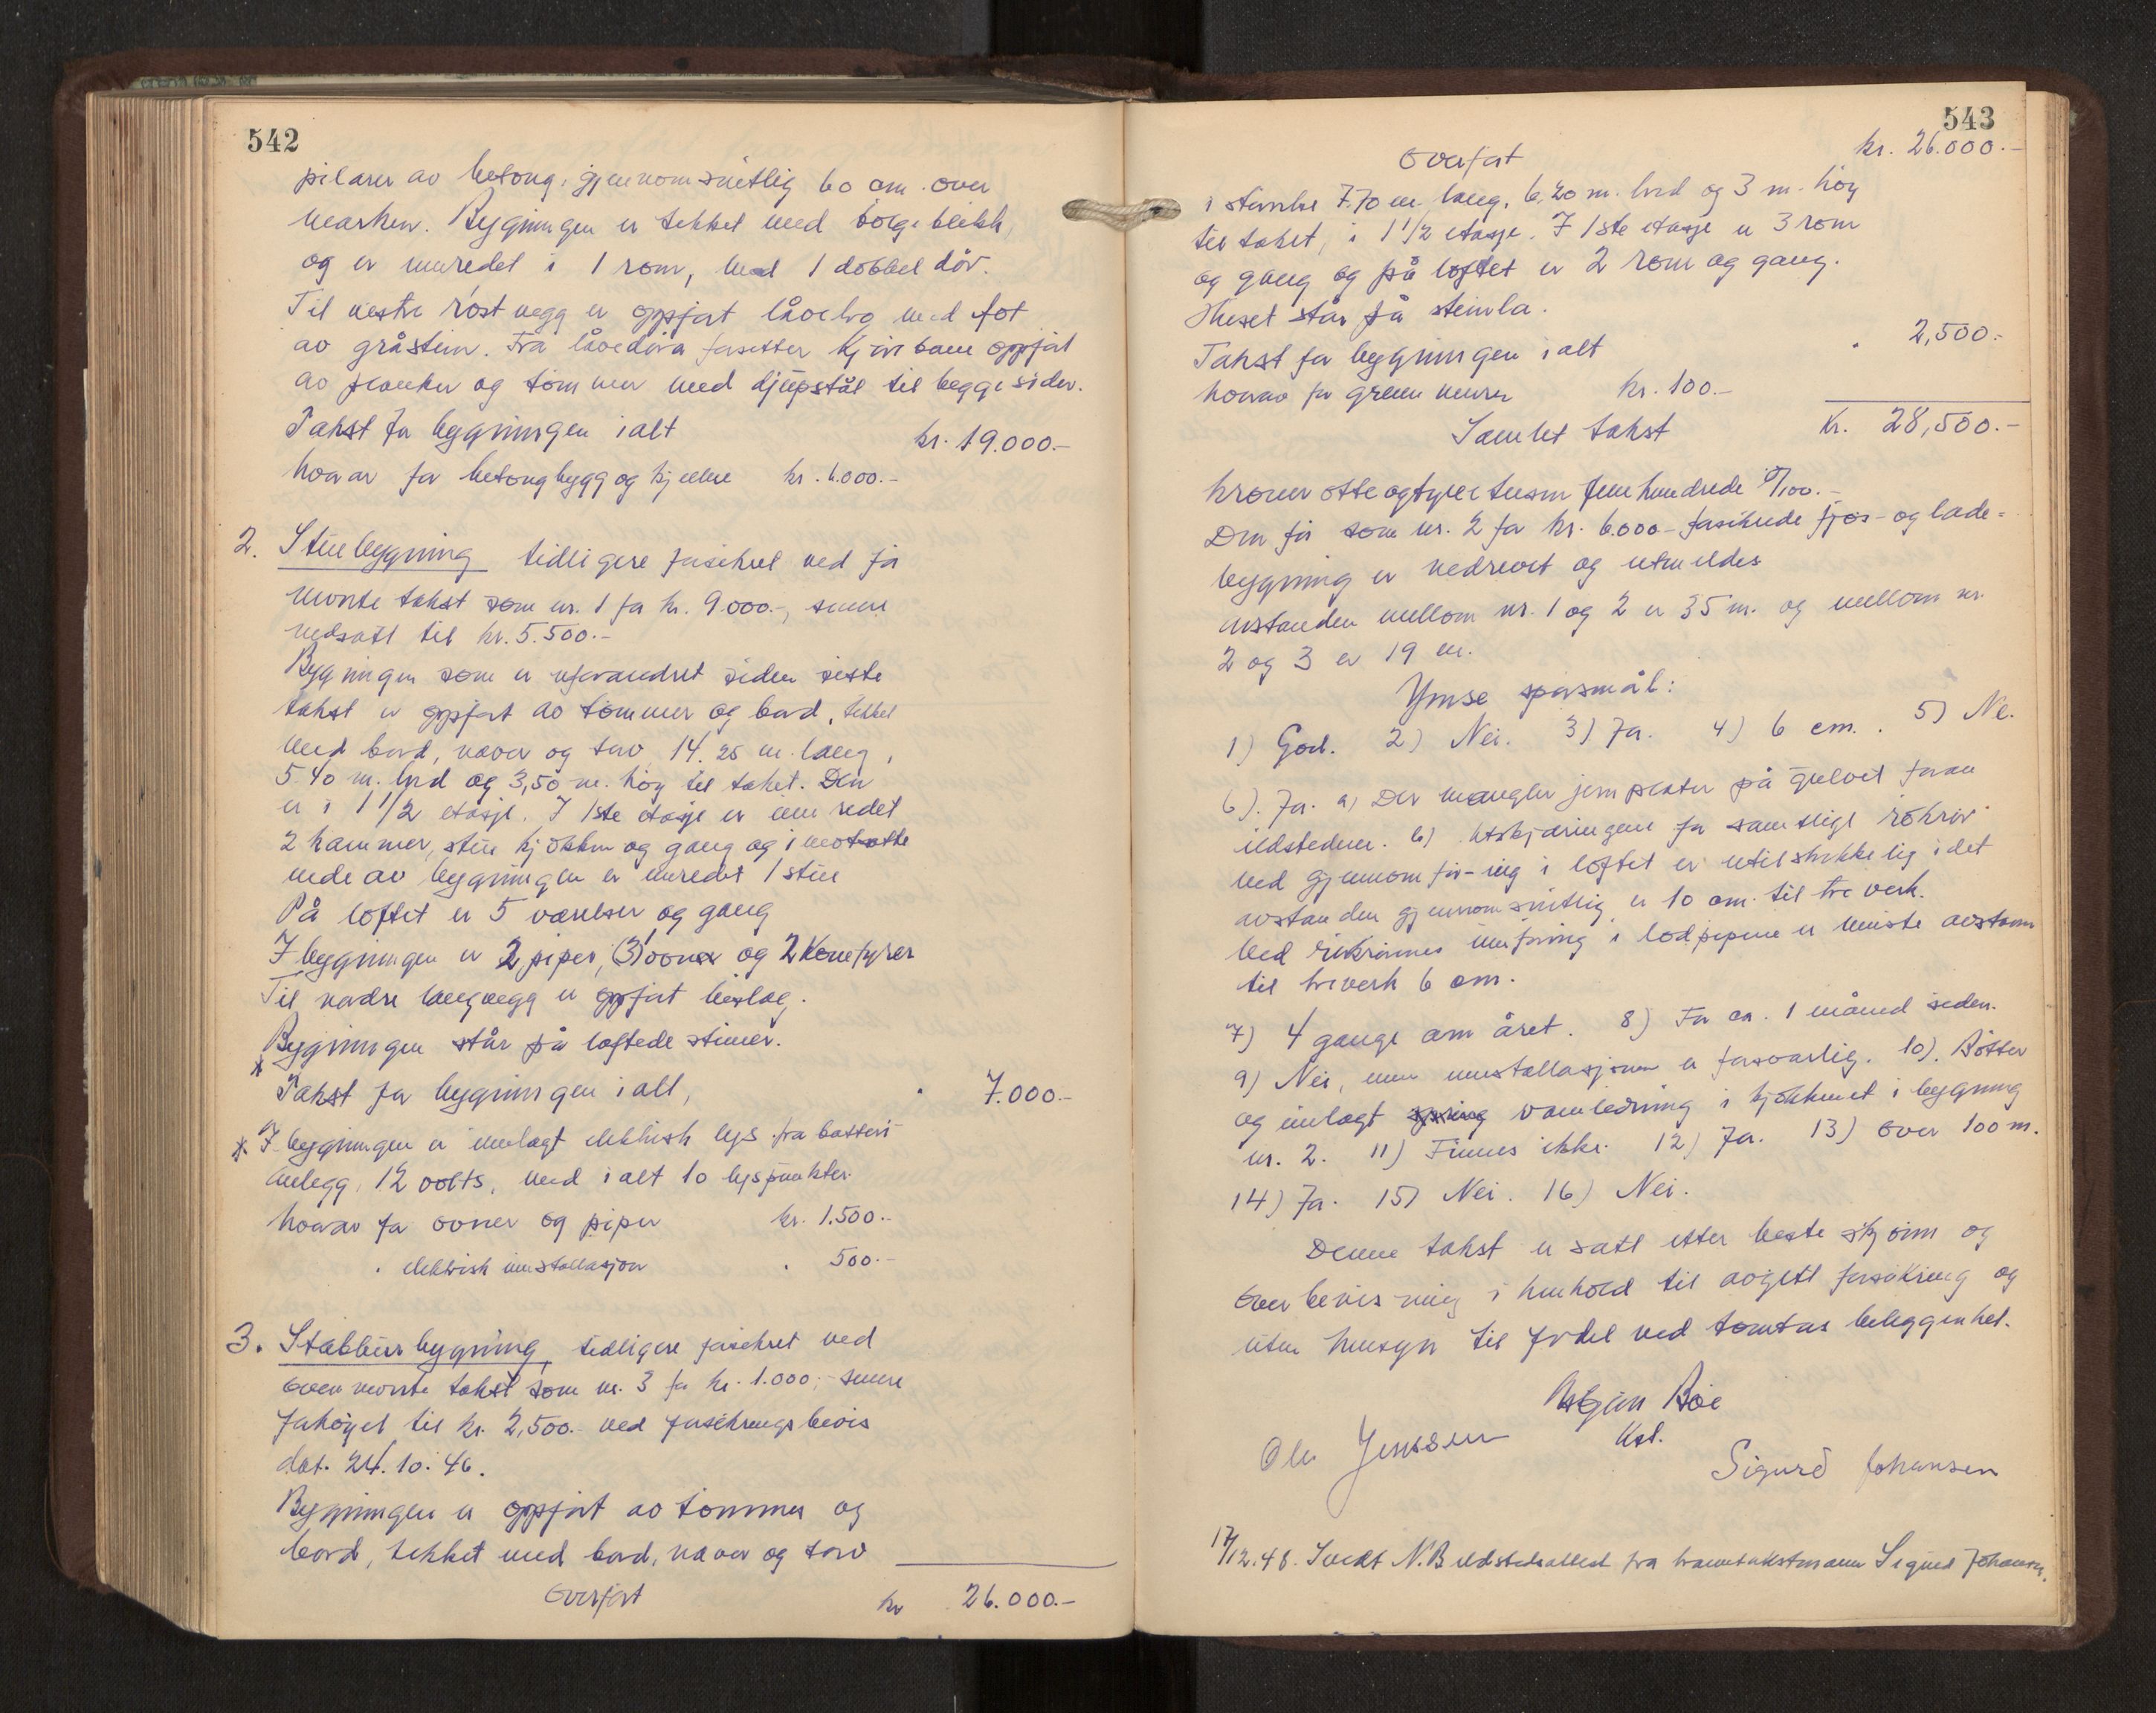 542
pilarer av betong, gjennomsnitlig 60 cm. over
marken. Bygningen er tekket med bølgeblikk,
og er innredet i 1 rom, med 1 dobbel dör.
Til vestre röstvegg er oppfört låvebro med fot
av gråstein. Fra låvedöra forsetter kjörebane oppfört
av planker og tömmer med djupstål til begge sider.
Takst for bygningen ialt kr. 19.000.-
hvorav for betongbygg og kjeller kr. 6.000.-
2. Stuebygning tidligere forsikret ved for
nevnte takst som nr. 1 for kr. 9.000.-, senere
nedsatt til kr. 5.500.-
Bygningen som er uforandret siden siste
takst er oppfört av tömmer og bord, tekket
med bord, never og torv, 14.25 m. lang,
5.40 m. bred og 3,50 m. höy til taket. Den
er i 1 1/2 etasje. I 1ste etasje er innredet
2 kammer, stue kjökken og gang og i motsatte
ende av bygningen er innredet 1 stue
På loftet er 5 værelser og gang
I bygningen er 2 piper, (3) ovner og 2 komfyrer
Til nordre langvegg er oppfört bislag.
Bygningen står på loftede steiner.
*
Takst for bygningen ialt, " 7.000.-
* I bygningen er innlagt elektrisk lys fra batteri-
anlegg, 12 volts, med ialt 10 lyspunkter.
hvorav for ovner og piper kr. 1.500.-
" elektrisk innstallasjon " 500.-
3. Stabbursbygning, tidligere forsikret ved
ovennevnte takst som nr. 3 for kr. 1.000,- senere
forhöyet til kr. 2,500.- ved forsikringsbevis
dat. 24.10.46.
Bygningen er oppfört av tömmer og
bord, tekket med bord, never og torv
Overfört kr 26.000.-
543
Overfört kr. 26.000.-
i størrelse 7.70 m lang, 6,20 m. bred og 3 m. höy
til taket, i 1 1/2 etasje. I 1ste etasje er 3 rom
og gang og på loftet er 2 rom og gang.
Huset står på steinla.
Takst for bygningen ialt " 2,500.-
hvorav for grunnmurer kr. 100.-
Samlet takst Kr. 28,500.-
kroner åtteogtyvetusen femhundrede 0/100.-
Den för som nr. 2 for kr. 6.000.- forsikrede fjös- og lade-
bygning er nedrevet og utmeldes
avstanden mellom nr. 1 og 2 er 35 m. og mellom nr.
2 og 3 er 19 m.
Ymse spörsmål:
1) God. 2) Nei. 3) Ja. 4) 6 cm. 5) Ne.
6). Ja. a) Der mangler jernplater på gulvet foran
ildstedene. b) Utskjæringene for samtlige rökrör
ved gjennomför-ing i loftet er utilstrekkelig idet
avstanden gjennomsnitlig er 10 cm. til treverk.
Ved rökrörenes innföring i lodpipene er minste avstann
til treverk 6 cm.
7) 4 gange om året. 8) For ca. 1 måned siden.
9) Nei, men innstallasjonen er forsvarlig. 10). Bötter
og innlagt vannledning i kjökkenet i bygning
nr. 2. 11) Finnes ikke. 12) Ja. 13) Over 100 m.
14) Ja. 15) Nei. 16) Nei.
Denne takst er satt etter beste skjönn og
overbevisning i henhold til avgitt forsikring og
uten hensyn til fordel ved tomtas beliggenhet.
Asbjörn Böe
Ole Jenssen Ksl.
Sigurd Johansen
17/12.48. Sendt N.B ildstedsattest fra branntakstmann Sigurd Johansen.